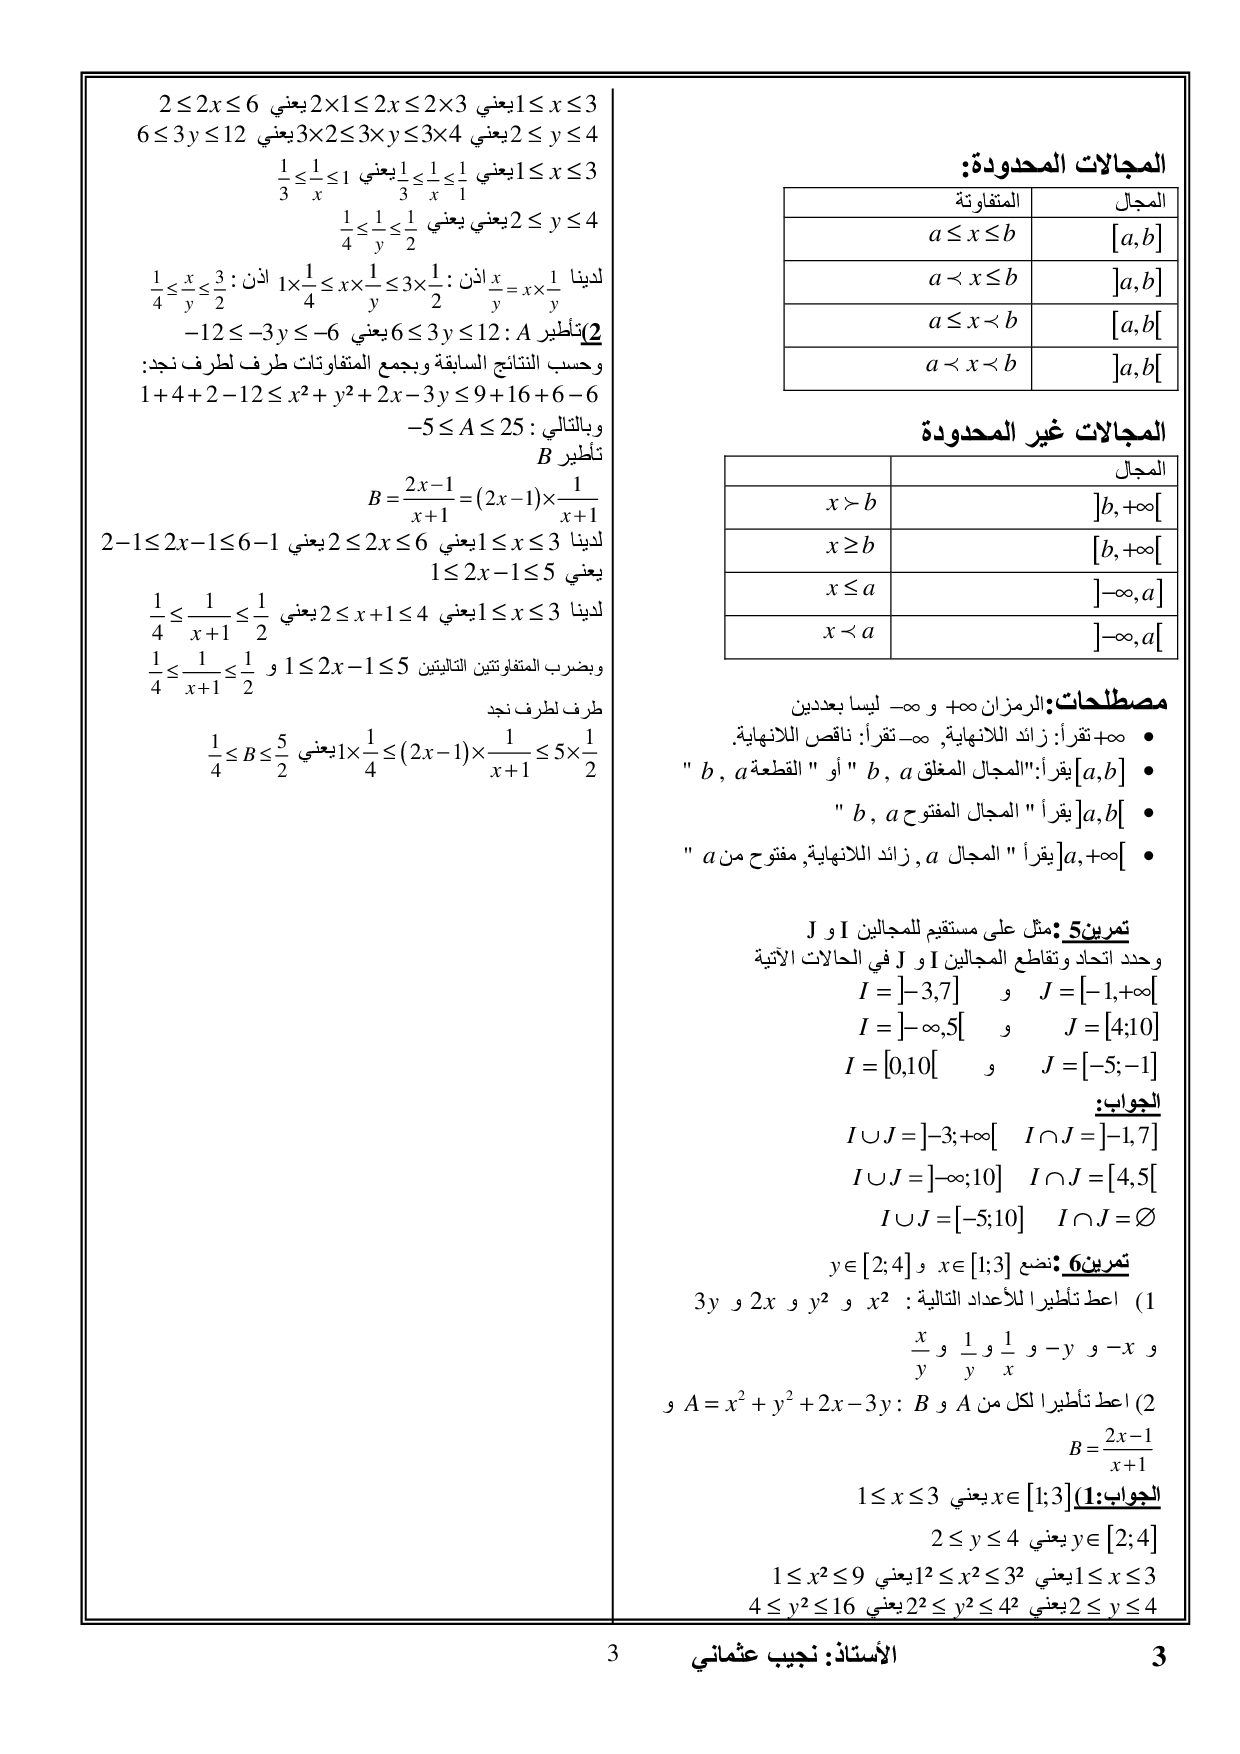 المجالات المحدودة:
المجال المتفاوتة
[a,b] a ≤ x ≤ b
]a,b] a ≺ x ≤ b
[a,b[ a ≤ x ≺ b
]a,b[ a ≺ x ≺ b
المجالات غير المحدودة
المجال
]b,+∞[ x ≻ b
[b,+∞[ x ≥ b
]−∞,a] x ≤ a
]−∞,a[ x ≺ a
مصطلحات: الرمزان +∞ و −∞ ليسا بعددين
• +∞ تقرأ: زائد اللانهاية, −∞ تقرأ: ناقص اللانهاية.
• [a,b] يقرأ:"المجال المغلق a , b " أو " القطعة a , b "
• ]a,b[ يقرأ " المجال المفتوح a , b "
• ]a,+∞[ يقرأ " المجال a , زائد اللانهاية, مفتوح من a "
تمرين5 : مثل على مستقيم للمجالين I و J
وحدد اتحاد وتقاطع المجالين I و J في الحالات الآتية
J = [−1,+∞[ و I = ]−3,7]
J = [4;10] و I = ]−∞,5[
J = [−5;−1] و I = [0,10[
الجواب:
I ∩ J = ]−1,7] I ∪ J = ]−3;+∞[
I ∩ J = [4,5[ I ∪ J = ]−∞;10]
I ∩ J = ∅ I ∪ J = [−5;10]
تمرين6 : نضع x ∈ [1;3] و y ∈ [2;4]
1) اعط تأطيرا للأعداد التالية : x² و y² و 2x و 3y
و −x و −y و 1/x و 1/y و x/y
2) اعط تأطيرا لكل من A و B : A = x² + y² + 2x − 3y و
B = (2x−1)/(x+1)
الجواب:1) x ∈ [1;3] يعني 1 ≤ x ≤ 3
y ∈ [2;4] يعني 2 ≤ y ≤ 4
1 ≤ x ≤ 3 يعني 1² ≤ x² ≤ 3² يعني 1 ≤ x² ≤ 9
2 ≤ y ≤ 4 يعني 2² ≤ y² ≤ 4² يعني 4 ≤ y² ≤ 16
1 ≤ x ≤ 3 يعني 2×1 ≤ 2x ≤ 2×3 يعني 2 ≤ 2x ≤ 6
2 ≤ y ≤ 4 يعني 3×2 ≤ 3×y ≤ 3×4 يعني 6 ≤ 3y ≤ 12
1 ≤ x ≤ 3 يعني 1/3 ≤ 1/x ≤ 1/1 يعني 1/3 ≤ 1/x ≤ 1
2 ≤ y ≤ 4 يعني يعني 1/4 ≤ 1/y ≤ 1/2
لدينا x/y = x×1/y اذن : 1×1/4 ≤ x×1/y ≤ 3×1/2 اذن : 1/4 ≤ x/y ≤ 3/2
2) تأطير A : 6 ≤ 3y ≤ 12 يعني −12 ≤ −3y ≤ −6
وحسب النتائج السابقة وبجمع المتفاوتات طرف لطرف نجد:
1+4+2−12 ≤ x² + y² + 2x − 3y ≤ 9+16+6−6
وبالتالي : −5 ≤ A ≤ 25
تأطير B
B = (2x−1)/(x+1) = (2x−1)×1/(x+1)
لدينا 1 ≤ x ≤ 3 يعني 2 ≤ 2x ≤ 6 يعني 2−1 ≤ 2x−1 ≤ 6−1
يعني 1 ≤ 2x−1 ≤ 5
لدينا 1 ≤ x ≤ 3 يعني 2 ≤ x+1 ≤ 4 يعني 1/4 ≤ 1/(x+1) ≤ 1/2
وبضرب المتفاوتتين التاليتين 1 ≤ 2x−1 ≤ 5 و 1/4 ≤ 1/(x+1) ≤ 1/2
طرف لطرف نجد
1×1/4 ≤ (2x−1)×1/(x+1) ≤ 5×1/2 يعني 1/4 ≤ B ≤ 5/2
3 الأستاذ: نجيب عثماني 3